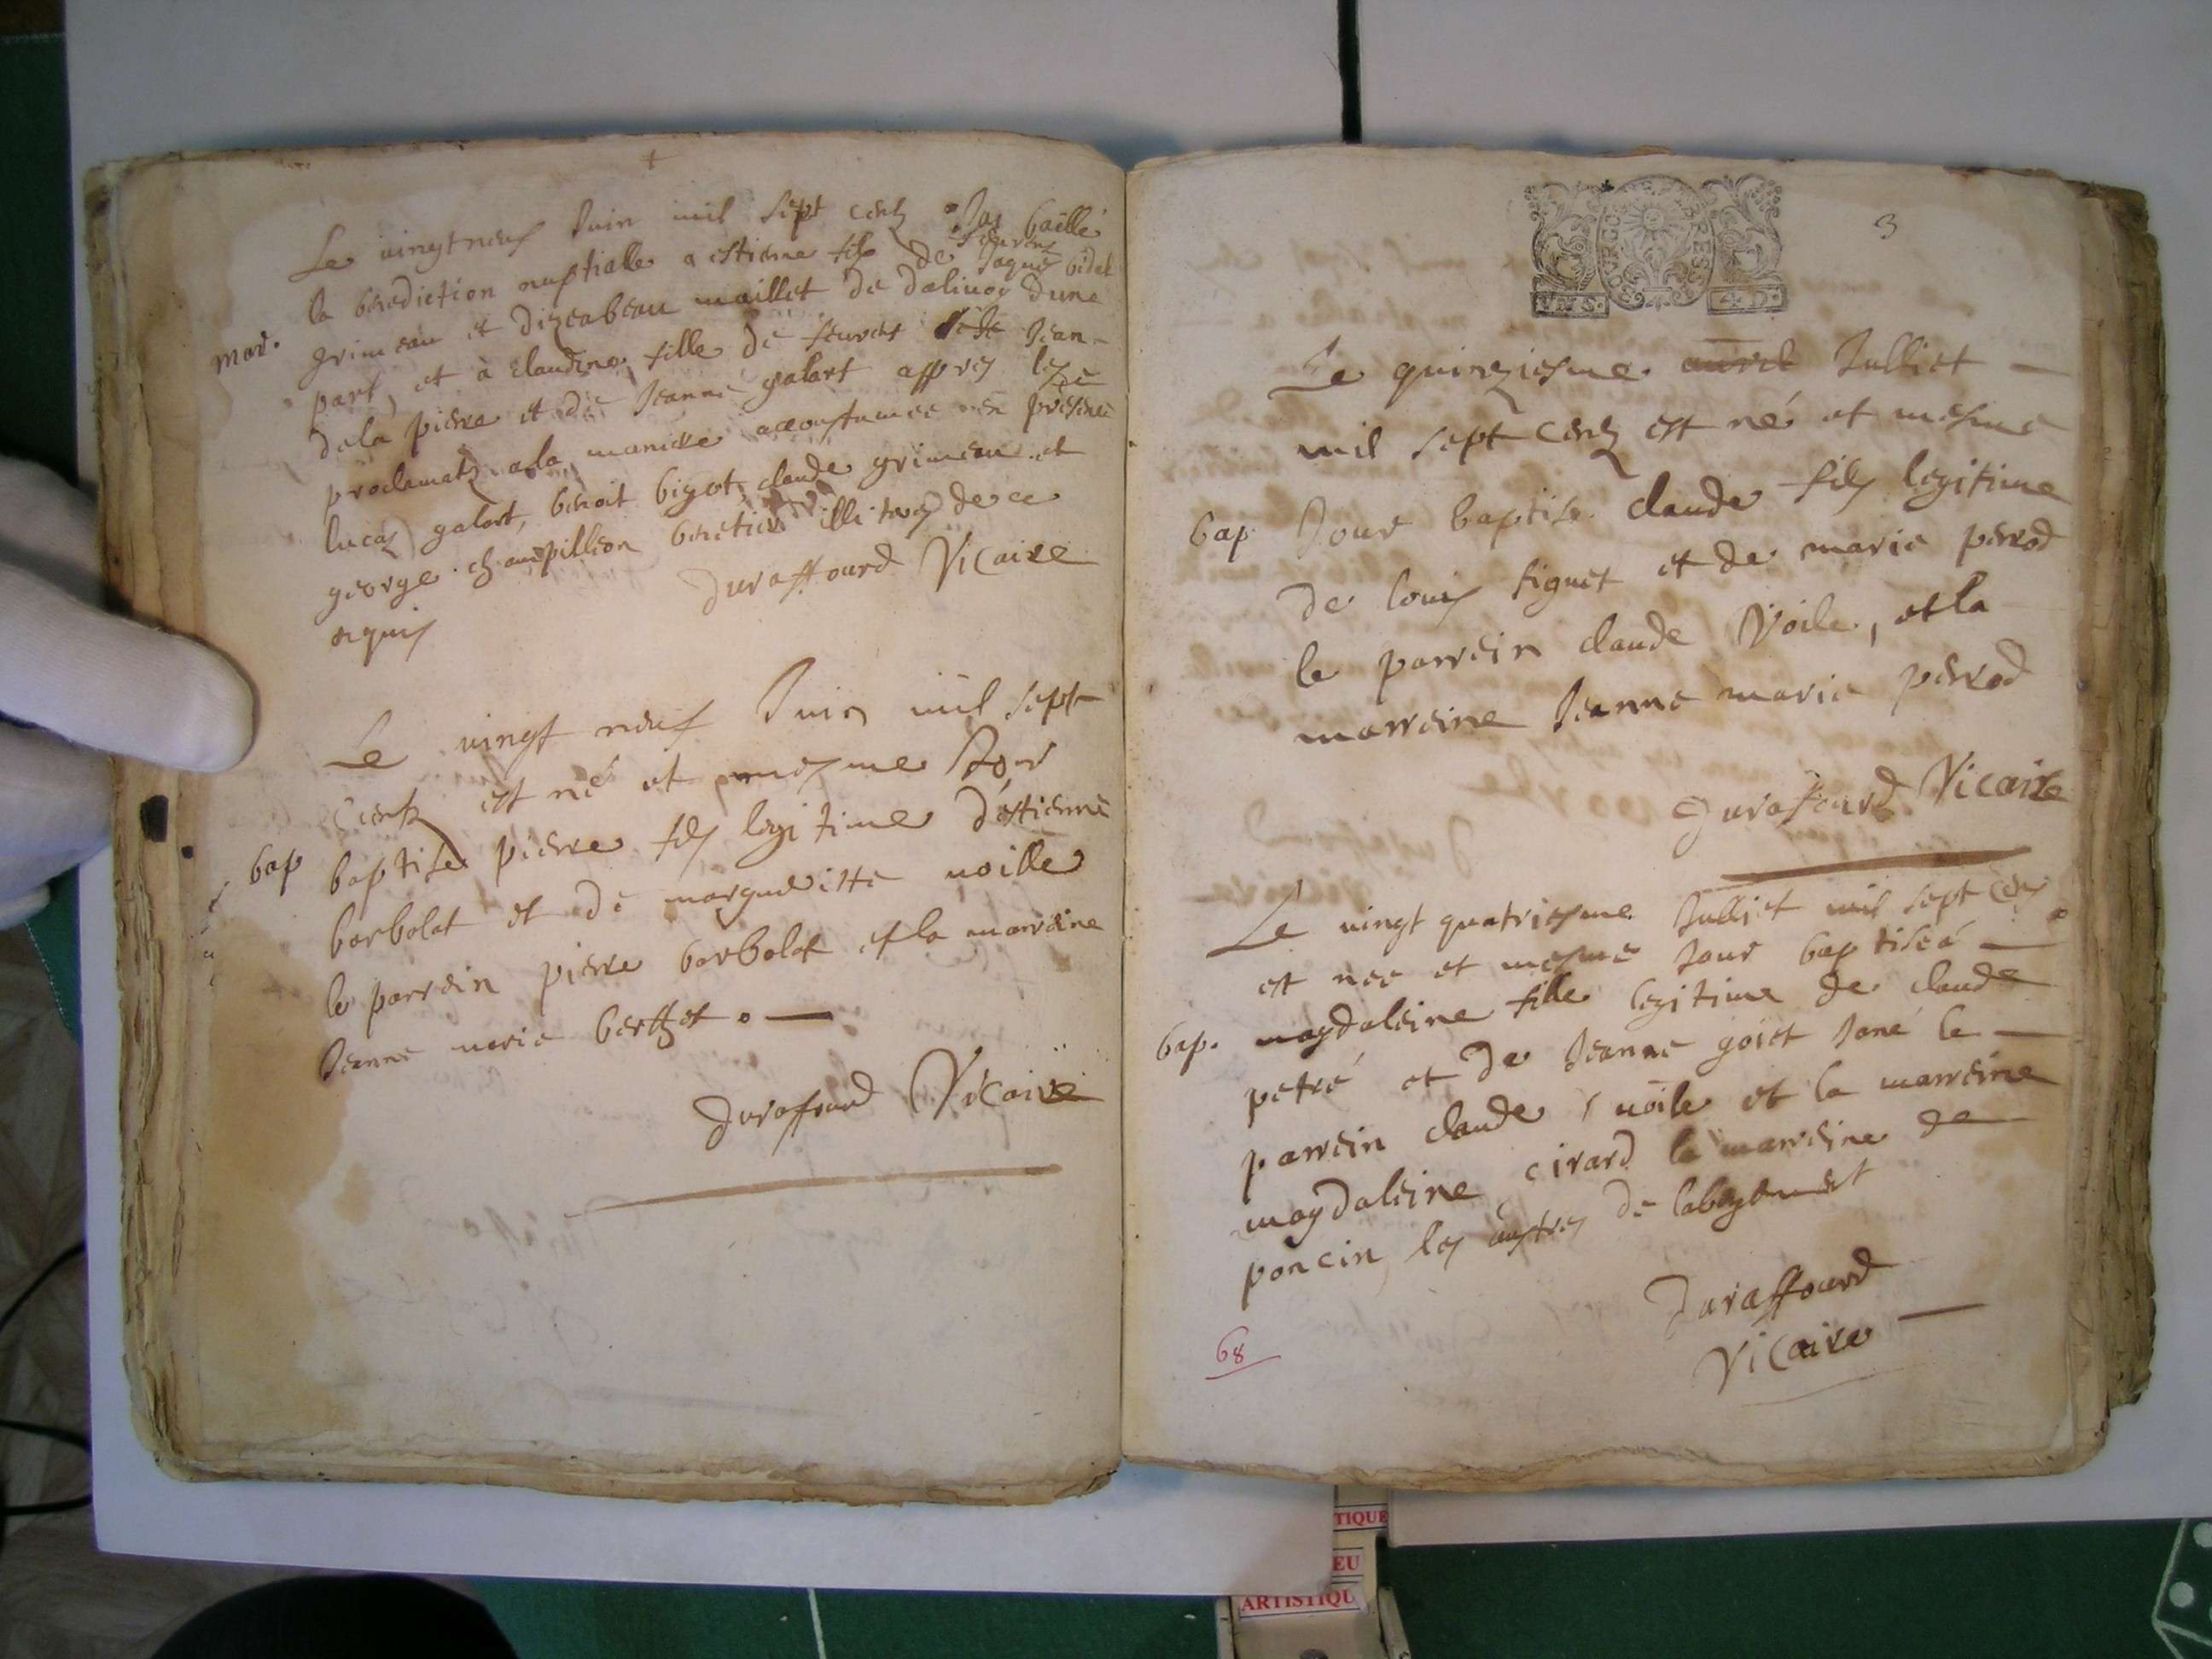 Le vingtneuf Juin mil sept centz Jay baillé
la benediction nuptialle a estienne fils de feurent Jaque bidal
grimeau et dizeabeau maillet de dalivoy dune
mar. part, et à claudine fille de feurent Jean
dela pierre et de Jeanne galart appres les
proclamatz a la maniere accoustumee en presence de
lucas galart, benoit bigot, claude grimeau et
george champillion benetier illiterez de ce
enquis
duraffourd Vicaire
Le vingt neuf Juin mil sept
centz est né et mesme Jour
bap baptisé pierre fils legitime d'estienne
barbolat et de margueritte voille
le parrein pierre barbolat et la marreine
Jeanne marie berthet.
duraffourd Vicaire
3
BOURGO ESSE
VNS. 4D.
Le quinziesme avril Julliet
mil sept centz est né et mesme
bap Jour baptisé claude fils legitime
de louis figuet et de marie perrod
le parrein claude Voile, et la
marreine Jeanne marie perrod
duraffourd Vicaire
Le vingt quatriesme Julliet mil sept cens
est nee et mesme Jour baptiseé
bap. magdaleine fille legitime de claude
petré et de Jeanne goiet Jané le
parrein claude voile et la marreine
magdaleine cirard la marreine de
poncin les austres de labergement
duraffourd
Vicaire
68
TIQUE
EU
ARTISTIQU